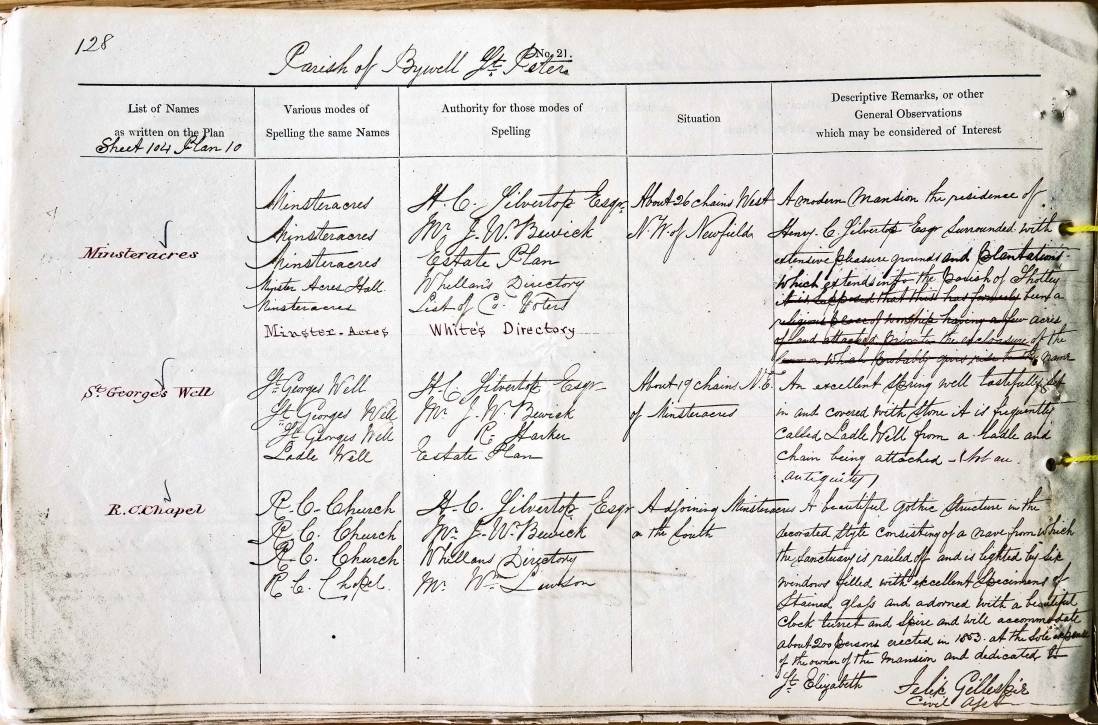 128
No. 21.
Parish of Bywell St. Peter
List of Names
as written on the Plan
Sheet 104 Plan 10
Various modes of
Spelling the same Names
Authority for those modes of
Spelling
Situation
Descriptive Remarks, or other
General Observations
which may be considered of Interest
Minsteracres
Minsteracres
Minsteracres
Minsteracres
Minster Acres Hall
Minsteracres
Minster-Acres
H. C. Silvertop Esqr
Mr. J. W. Bewick
Estate Plan
Whellan's Directory
List of Co. Voters
White's Directory
About 26 chains West
N.W. of Newfield
A modern Mansion the residence of
Henry C. Silvertop Esqr Surrounded with
extensive pleasure grounds and Plantations
which extends into the Parish of Shotley
it is supposed that this has formerly been a
religious place of worship having a few acres
of land attached the enclosure of the
What probably gives rise to the name
St. George's Well
St. Georges Well
St. Georges Well
St. Georges Well
Ladle Well
H. C. Silvertop Esqr
Mr. J. W. Bewick
R. Harker
Estate Plan
About 19 chains N.E.
of Minsteracres
An excellent spring well tastefully set
in and covered with Stone it is frequently
called Ladle Well from a ladle and
chain being attached - Not an
antiquity
R.C. Chapel
R. C. Church
R. C. Church
R. C. Church
R. C. Chapel
H. C. Silvertop Esqr
Mr. J. W. Bewick
Whellans Directory
Mr. Wm.
Adjoining Minsteracres
on the South
A beautiful Gothic Structure in the
decorated style consisting of a nave from which
the sanctuary is railed off and is lighted by six
windows filled with excellent Specimens of
Stained glass and adorned with a beautiful
clock turret and spire and will accommodate
about 200 persons erected in 1853 at the sole expense
of the owner of the Mansion and dedicated to
St. Elizabeth
Felix Gillespie
Civil Asst